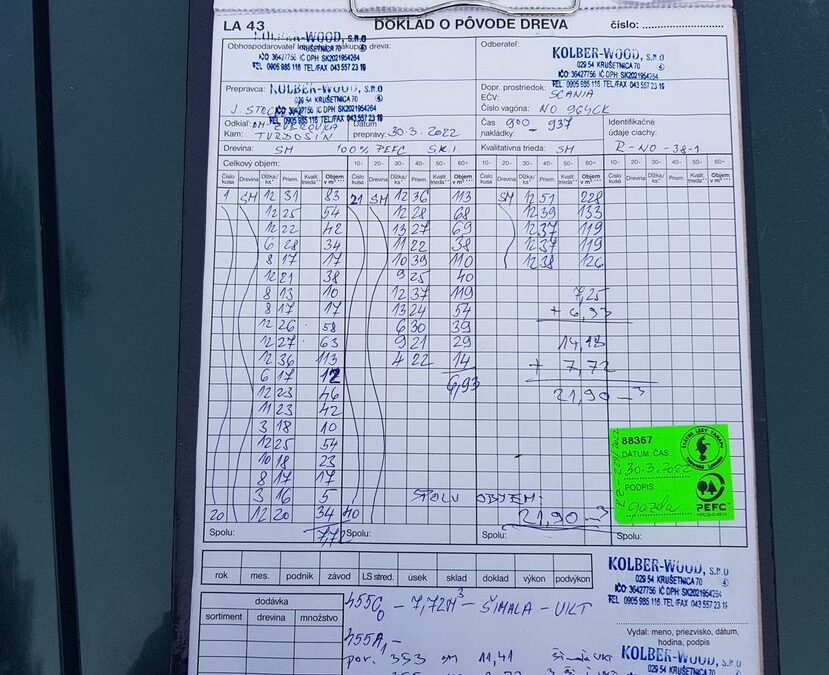 LA 43 DOKLAD O PÔVODE DREVA číslo:
KOLBER-WOOD, s.r.o
KRUŠETNICA 70
IČO 36427756 IČ DPH SK2021954264
TEL 0905 985 116 TEL/FAX 043 557 23 19
Obhospodarovateľ dreva:
Odberateľ:
KOLBER-WOOD, s.r.o
029 54 KRUŠETNICA 70
IČO 36427756 IČ DPH SK2021954264
TEL. 0905 985 116 TEL/FAX 043 557 23 19
Prepravca: KOLBER-WOOD, s.r.o
029 54 KRUŠETNICA 70
IČO 36427756 IČ DPH SK2021954264
TEL. 0905 985 116 TEL/FAX 043 557 23 19
Dopr. prostriedok: SCANIA
EČV:
Číslo vagóna: NO 964CK
Odkiaľ: ZVEROVKA
Kam: TVRDOŠÍN
Dátum
prepravy: 30.3.2022
Čas 900 - 937
nakládky:
Identifikačné
údaje ciachy:
R-NO-38-1
Drevina: SM 100% PEFC SK.1. Kvalitatívna trieda: SM
Celkový objem: 10- 20- 30- 40- 50- 60+ 10- 20- 30- 40- 50- 60+
Číslo kusa Drevina Dĺžka/ks Priem. Kvalit. trieda Objem v m³ Číslo kusa Drevina Dĺžka/ks Priem. Kvalit. trieda Objem v m³ Číslo kusa Drevina Dĺžka/ks Priem. Kvalit. trieda Objem v m³
1 SM 12 31 83 21 SM 12 36 113 SM 12 51 228
12 25 54 12 28 68 12 39 133
12 22 42 13 27 69 12 37 119
6 28 34 11 22 38 12 37 119
8 17 17 10 39 110 12 38 126
12 21 38 9 25 40
8 13 10 12 37 119 7,25
8 17 17 13 24 54 + 6,93
12 26 58 6 30 39
12 27 63 9 21 29 14,18
12 36 113 4 22 14 + 7,72
6 17 12 6,93
12 23 46 21,90 m³
11 23 42
3 18 10
12 25 54
10 18 23
8 17 17
3 16 5 OBJEM:
20 12 20 34 40 21,90 m³
Spolu: 7,72 Spolu: Spolu:
88367
DÁTUM, ČAS:
30.3.2022
PODPIS:
PEFC
rok mes. podnik závod LS stred. úsek sklad doklad výkon podvýkon
KOLBER-WOOD, s.r.o
029 54 KRUŠETNICA 70
IČO 36427756 IČ DPH SK2021954264
TEL. 0905 985 116 TEL/FAX 043 557 23 19
dodávka
sortiment drevina množstvo
- 7,72 M³ - ŠIMALA - VILT
Vydal: meno, priezvisko, dátum,
hodina, podpis
por. 353 sm 11,41
KOLBER-WOOD, s.r.o
029 54 KRUŠETNICA 70